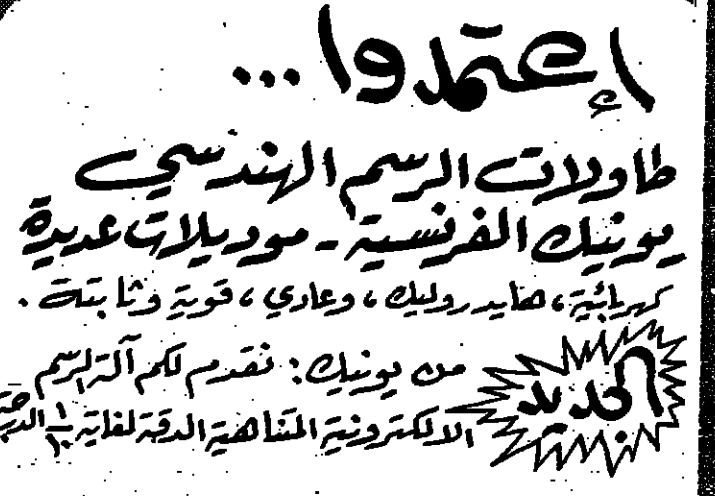 إعتمدوا...
طاولات الرسم الهندسي
يونيك الفرنسية - موديلات عديدة
كهربائية، هايدروليك، وعادي، قوية وثابتة.
الجديد
من يونيك: نقدم لكم آلة الرسم
الالكترونية المتناهية الدقة لغاية ١/١٠ الدرجة